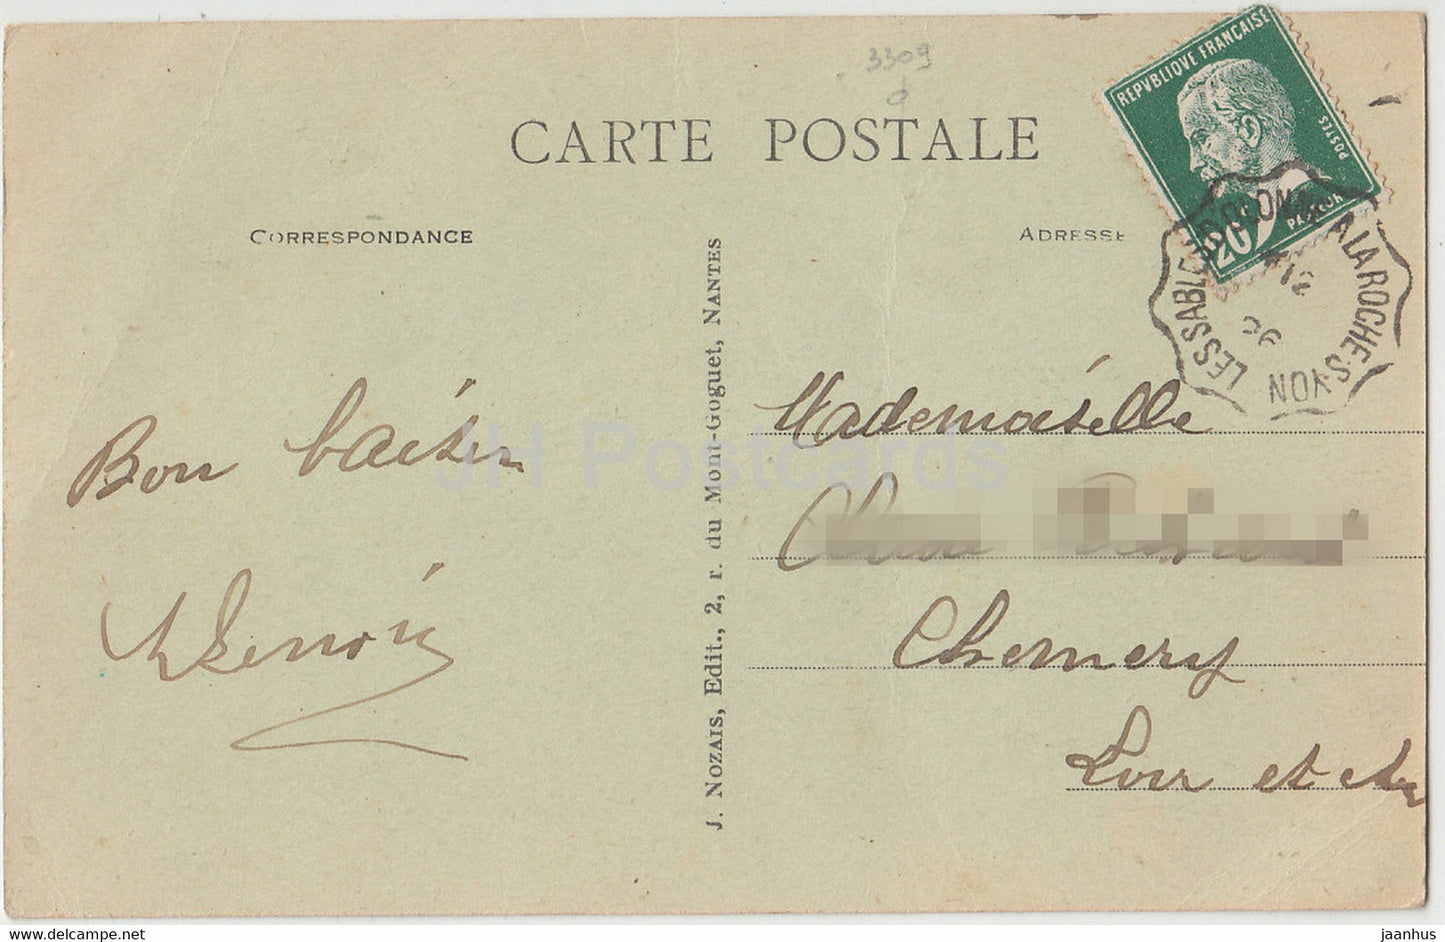 3309
CARTE POSTALE
CORRESPONDANCE
ADRESSE
REPVBLIQVE FRANÇAISE
POSTES
PASTEUR
20c
LES SABLES D'OLONNE A LA ROCHE-S-YON
12
26
J. NOZAIS, Edit., 2, r. du Mont-Goguet, NANTES
Bon baiser
Mademoiselle
Chemery
Loir et cher
JH Postcards
delcampe.net
jaanhus